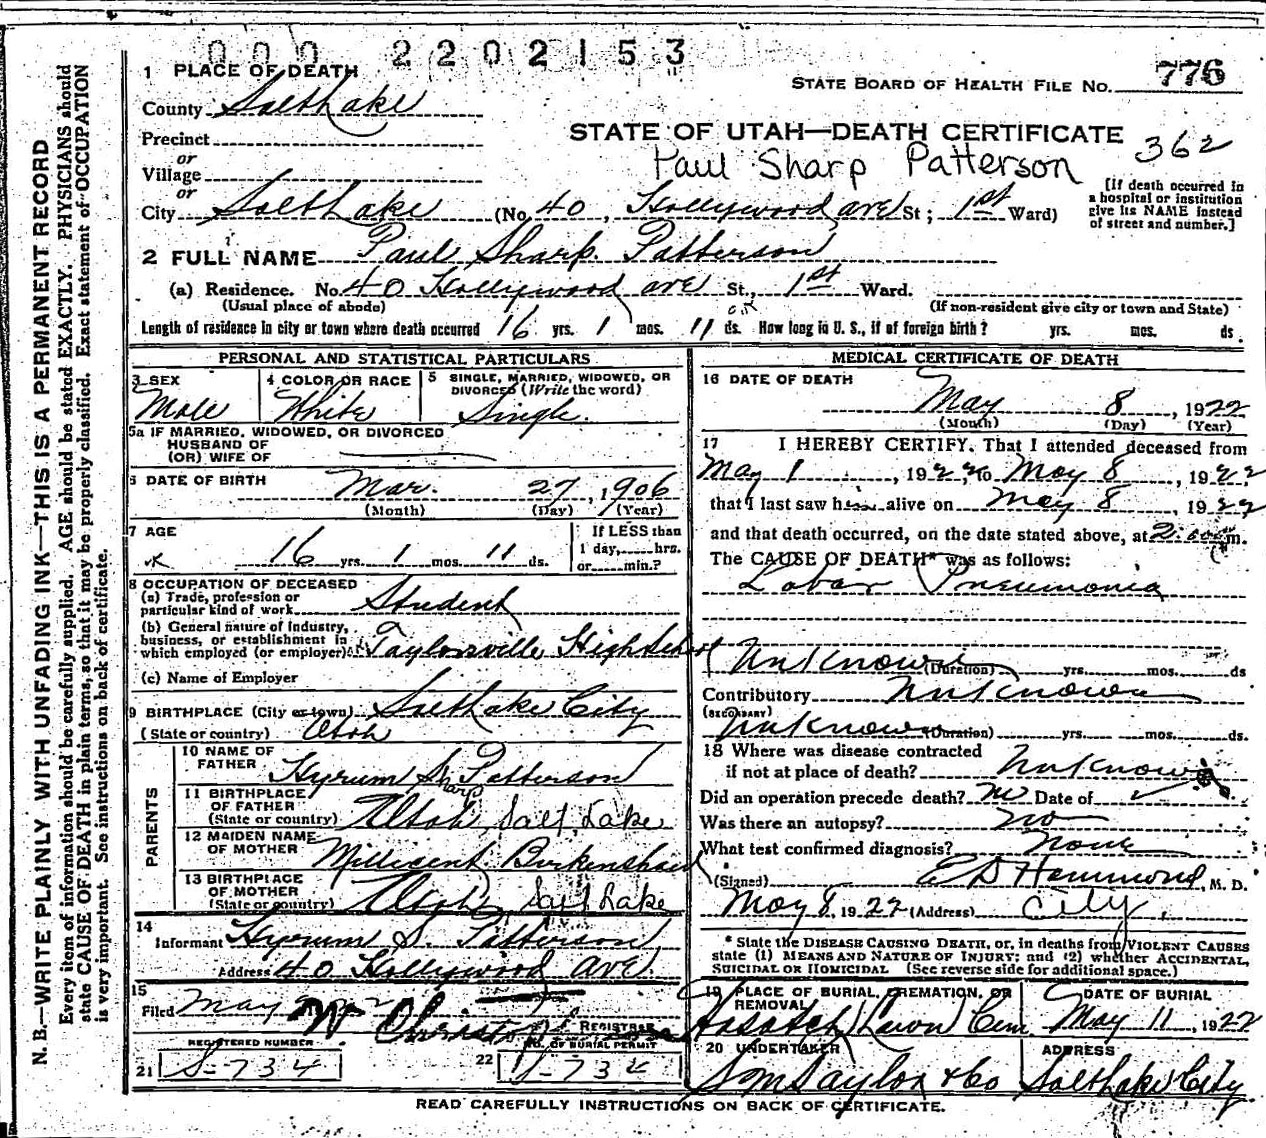 000 2202153
1 PLACE OF DEATH
STATE BOARD OF HEALTH FILE NO. 776
County Salt Lake
Precinct
STATE OF UTAH—DEATH CERTIFICATE
362
or
Paul Sharp Patterson
Village
or
City Salt Lake (No. 40, Hollywood ave St; 1st Ward)
[If death occurred in
a hospital or institution
give its NAME instead
of street and number.]
2 FULL NAME Paul Sharp Patterson
(a) Residence. No. 40 Hollywood ave St., 1st Ward.
(Usual place of abode) (If non-resident give city or town and State)
Length of residence in city or town where death occurred 16 yrs. 1 mos. 11 ds. How long in U. S., if of foreign birth? yrs. mos. ds.
PERSONAL AND STATISTICAL PARTICULARS
3 SEX
Male
4 COLOR OR RACE
White
5 SINGLE, MARRIED, WIDOWED, OR
DIVORCED (Write the word)
Single.
5a IF MARRIED, WIDOWED, OR DIVORCED
HUSBAND OF
(OR) WIFE OF
6 DATE OF BIRTH Mar. 27, 1906
(Month) (Day) (Year)
7 AGE
16 yrs. 1 mos. 11 ds.
If LESS than
1 day, hrs.
or min.?
8 OCCUPATION OF DECEASED
(a) Trade, profession or
particular kind of work Student
(b) General nature of industry,
business, or establishment in
which employed (or employer) Taylorsville High School
(c) Name of Employer
9 BIRTHPLACE (City or town) Salt Lake City
(State or country) Utah
PARENTS
10 NAME OF
FATHER Hyrum Sh Patterson
Sharp
11 BIRTHPLACE
OF FATHER
(State or country) Utah, Salt Lake
12 MAIDEN NAME
OF MOTHER Millicent Birkenshaw
13 BIRTHPLACE
OF MOTHER
(State or country) Utah, Salt Lake
14
Informant Hyrum S. Patterson,
Address 40 Hollywood Ave.
15
Filed May
REGISTRAR
REGISTERED NUMBER
21 S-734
NO. OF BURIAL PERMIT
22 S-732
MEDICAL CERTIFICATE OF DEATH
16 DATE OF DEATH
May 8, 1922
(Month) (Day) (Year)
17 I HEREBY CERTIFY. That I attended deceased from
May 1, 1922, to May 8, 1922,
that I last saw him alive on May 8 1922
and that death occurred, on the date stated above, at 2:00 m.
The CAUSE OF DEATH* was as follows:
Lobar Pneumonia
Unknown (Duration) yrs. mos. ds
Contributory Unknown
(SECONDARY)
Unknown (Duration) yrs. mos. ds.
18 Where was disease contracted
if not at place of death? Unknown
Did an operation precede death? no Date of
Was there an autopsy? no
What test confirmed diagnosis? None
(Signed) E D Hammond, M. D.
May 8, 1922 (Address) City.
* State the DISEASE CAUSING DEATH, or, in deaths from VIOLENT CAUSES
state (1) MEANS AND NATURE OF INJURY; and (2) whether ACCIDENTAL,
SUICIDAL OR HOMICIDAL (See reverse side for additional space.)
19 PLACE OF BURIAL, CREMATION, OR
REMOVAL
Wasatch Lawn Cem
DATE OF BURIAL
May 11, 1922
20 UNDERTAKER
S M Taylor & Co
ADDRESS
Salt Lake City
READ CAREFULLY INSTRUCTIONS ON BACK OF CERTIFICATE.
N. B.—WRITE PLAINLY WITH UNFADING INK—THIS IS A PERMANENT RECORD
Every item of information should be carefully supplied. AGE should be stated EXACTLY. PHYSICIANS should
state CAUSE OF DEATH in plain terms, so that it may be properly classified. Exact statement of OCCUPATION
is very important. See instructions on back of certificate.